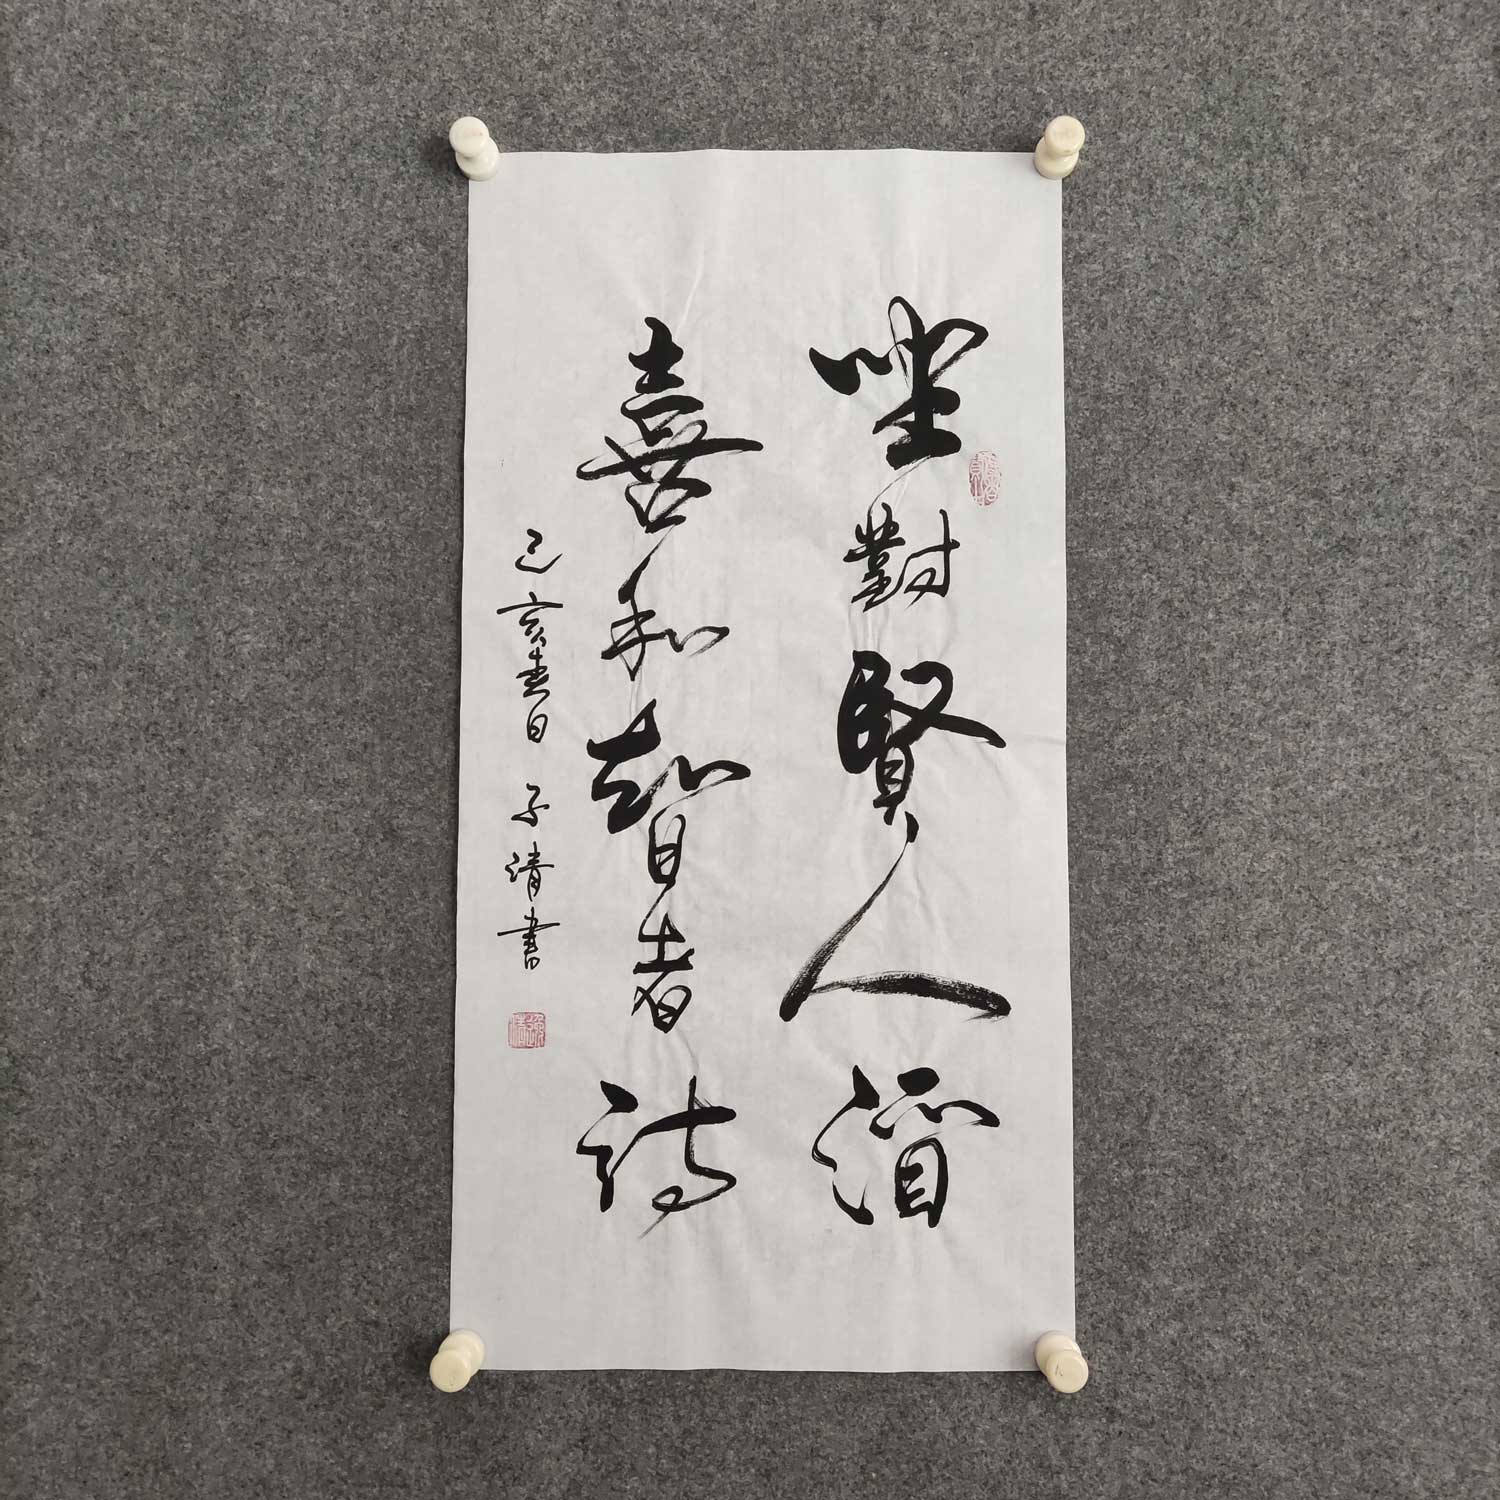 坐對賢人酒
喜和智者詩
己亥春日 子清書